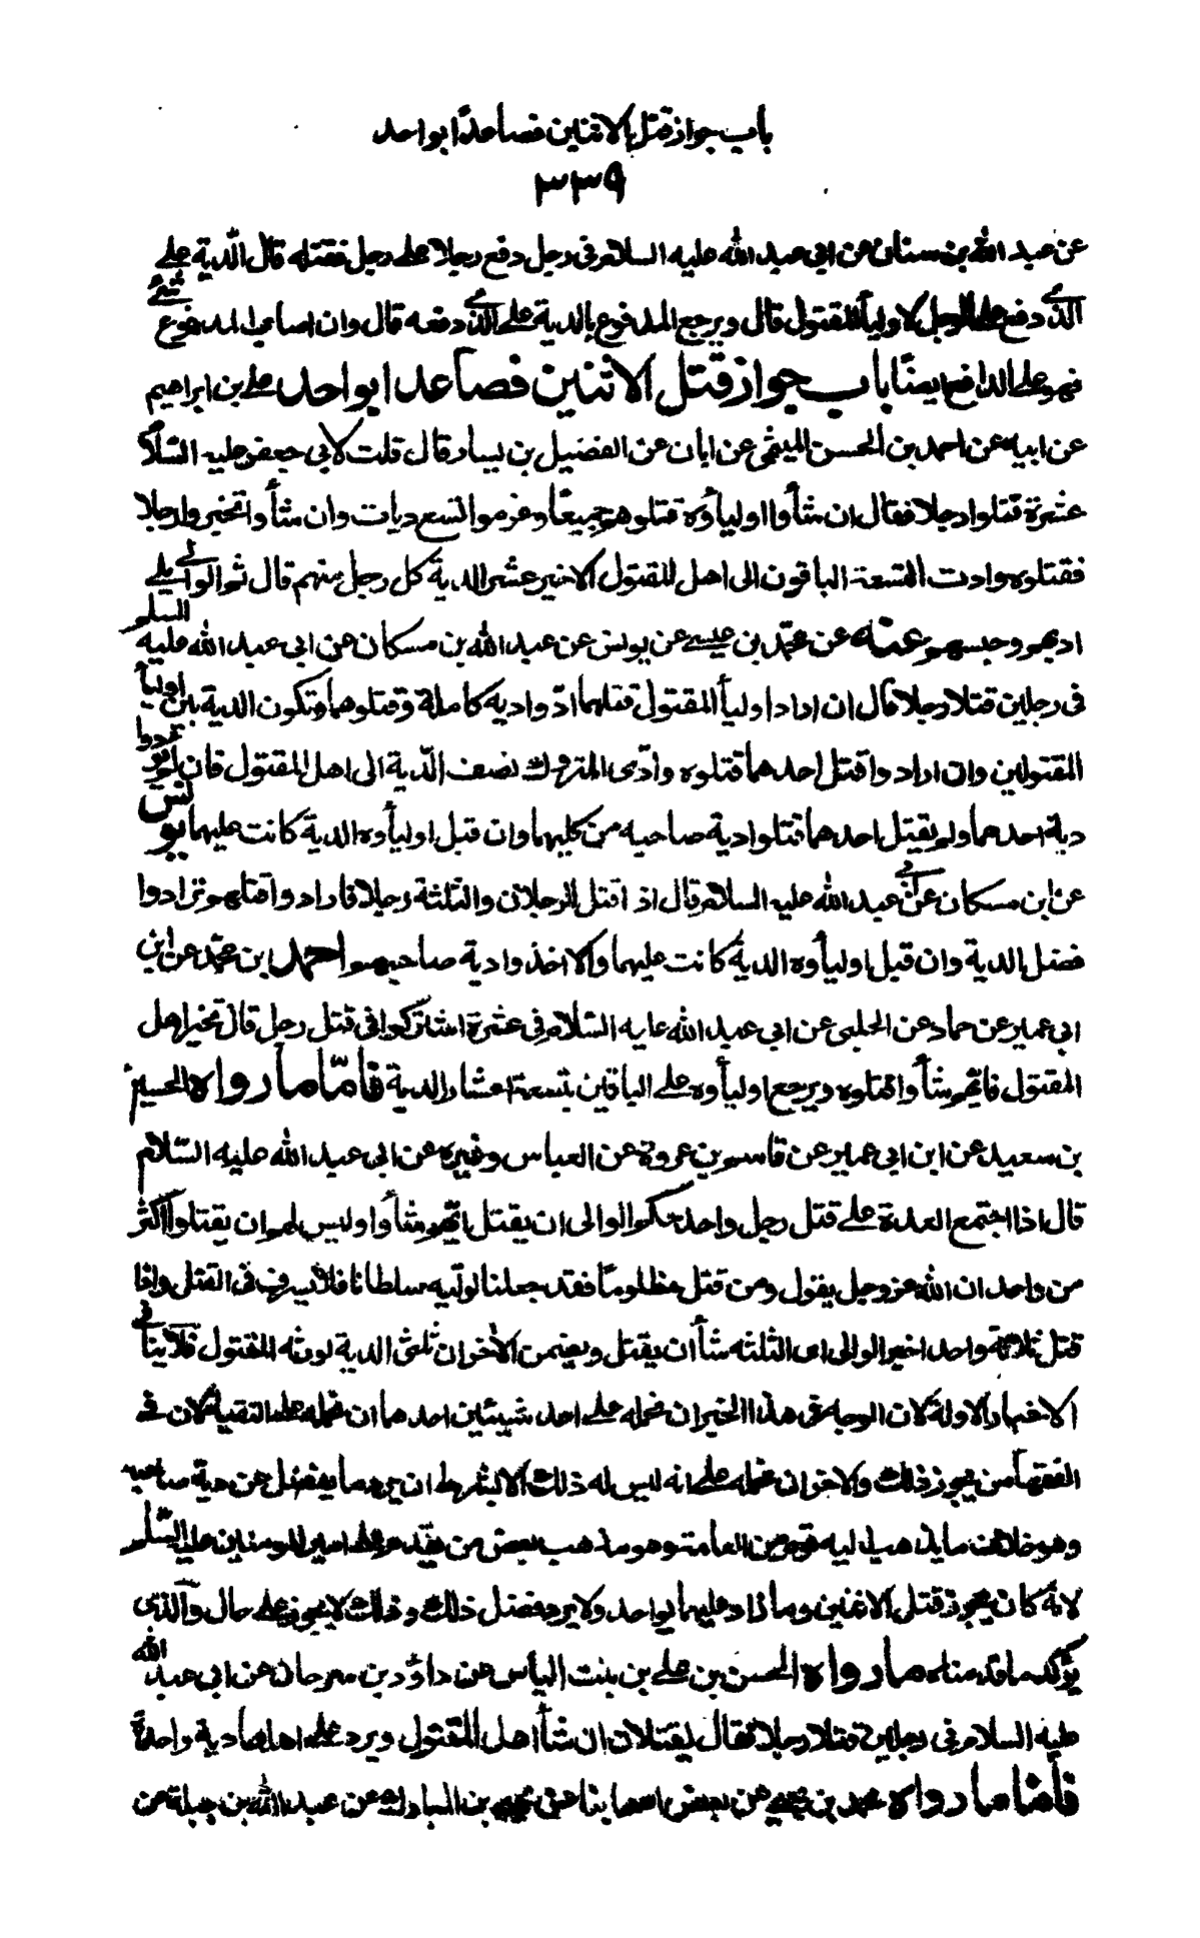 باب جواز قتل الاثنين فصاعدًا بواحد
٣٣٩
عن عبد الله بن سنان عن ابي عبد الله عليه السلام في رجل دفع رجلا على رجل فقتله قال الدّية على
الذي دفع على الرجل لاوليأ المقتول قال ويرجع المدفوع بالدية على الذي دفعه قال وان اصاب المدفوع شئ
فهو على الدافع ايضًا باب جواز قتل الاثنين فصاعدا بواحد علي بن ابراهيم
عن ابيه عن احمد بن الحسن الميثمي عن ابان عن الفضيل بن يسار قال قلت لابي جعفر عليه السّلام
عشرة قتلوا رجلا فقال ان شأوا اولياؤه قتلوهم جميعًا وغرموا تسع ديات وان شأوا تخيروا رجلا
فقتلوه وادت التسعة الباقون الى اهل المقتول الاخير عشر الدية كل رجل منهم قال ثم الوالي يلي
ادبهم وحبسهم عنه عن محمّد بن عيسى عن يونس عن عبد الله بن مسكان عن ابي عبد الله عليه السلم
في رجلين قتلا رجلا قال ان اراد اوليأ المقتول قتلهما ادّوا دية كاملة وقتلوهما وتكون الدية بين اوليأ
المقتولين وان ارادوا قتل احدهما قتلوه وادّى المتروك نصف الدّية الى اهل المقتول فان لم يؤدوا
دية احدهما ولم يقتل احدهما قتلوا دية صاحبه من كليهما وان قبل اوليأوه الدية كانت عليهما يونس
عن ابن مسكان عن ابي عبد الله عليه السلام قال اذا قتل الرجلان والثلثة رجلا فارادوا قتلهم ترادوا
فضل الدية وان قبل اوليأوه الدية كانت عليهما والا اخذوا دية صاحبهم احمد ابن محمّد عن ابن
ابي عمير عن حماد عن الحلبي عن ابي عبد الله عليه السّلام في عشرة اشتركوا في قتل رجل قال تخير اهل
المقتول فايّهم شأوا قتلوه ويرجع اوليأوه على الباقين بتسعة اعشار الدية فامّا ما رواه الحسين
بن سعيد عن ابن ابي عمير عن قاسم بن عروة عن العباس وغيره عن ابي عبد الله عليه السّلام
قال اذا اجتمع العدة على قتل رجل واحد حكم الوالى ان يقتل ايّهم شأوا وليس لهم ان يقتلوا اكثر
من واحد ان الله عز وجل يقول ومن قتل مظلومًا فقد جعلنا لوليّه سلطانا فلا يسرف في القتل واذا
قتل ثلاثة واحدا خير الوالى اى الثلثه شأ ان يقتل ويضمن الآخران ثلثى الدية لورثه المقتول فلا ينافي
الاخبار الاولة لان الوجه في هذا الخبر ان نحمله على احد شيئين احدهما ان نحمله على التقية لان في
الفقهأ من يجوز ذلك والآخر ان نحمله على انه ليس له ذلك الا بشرط ان يرد ما يفضل عن دية صاحبه
وهو خلاف ما يذهب اليه قوم من العامة وهو مذهب بعض من تقدم على امير المومنين عليه السّلم
لانّه كان يجوز قتل الاثنين وما زاد عليهما بواحد ولا يرد فضل ذلك وذلك لا يجوز على حال والّذى
يؤكد ما قدمناه ما رواه الحسن بن علي بن بنت الياس عن داؤد بن سرحان عن ابي عبد الله
عليه السلام في رجلين قتلا رجلا فقال يقتلان ان شأ اهل المقتول ويرد على اهلهما دية واحدة
فأما ما رواه محمد بن يحيى عن بعض اصحابنا عن يحيى بن المبارك عن عبد الله بن جبلة عن